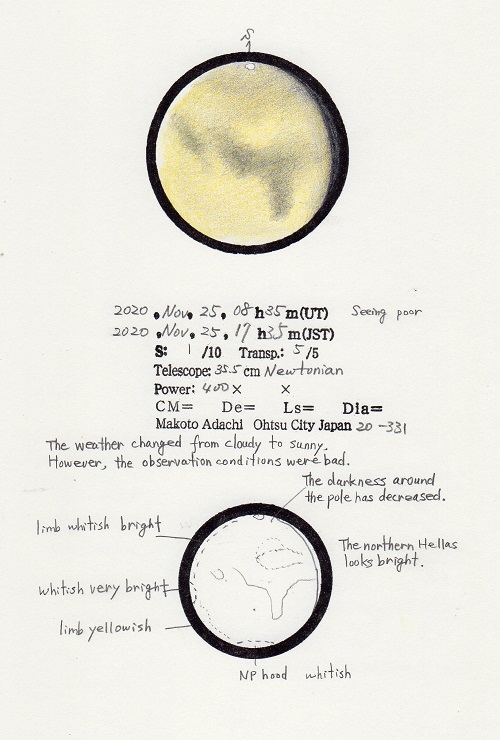 S
2020, Nov, 25, 08 h 35 m (UT) Seeing poor
2020, Nov, 25, 17 h 35 m (JST)
S: 1 /10 Transp.: 5 /5
Telescope: 35.5 cm Newtonian
Power: 400 × ×
CM= De= Ls= Dia=
Makoto Adachi Ohtsu City Japan 20-331
The weather changed from cloudy to sunny.
However, the observation conditions were bad.
The darkness around
the pole has decreased.
limb whitish bright
The northern Hellas
looks bright.
whitish very bright
limb yellowish
NP hood whitish